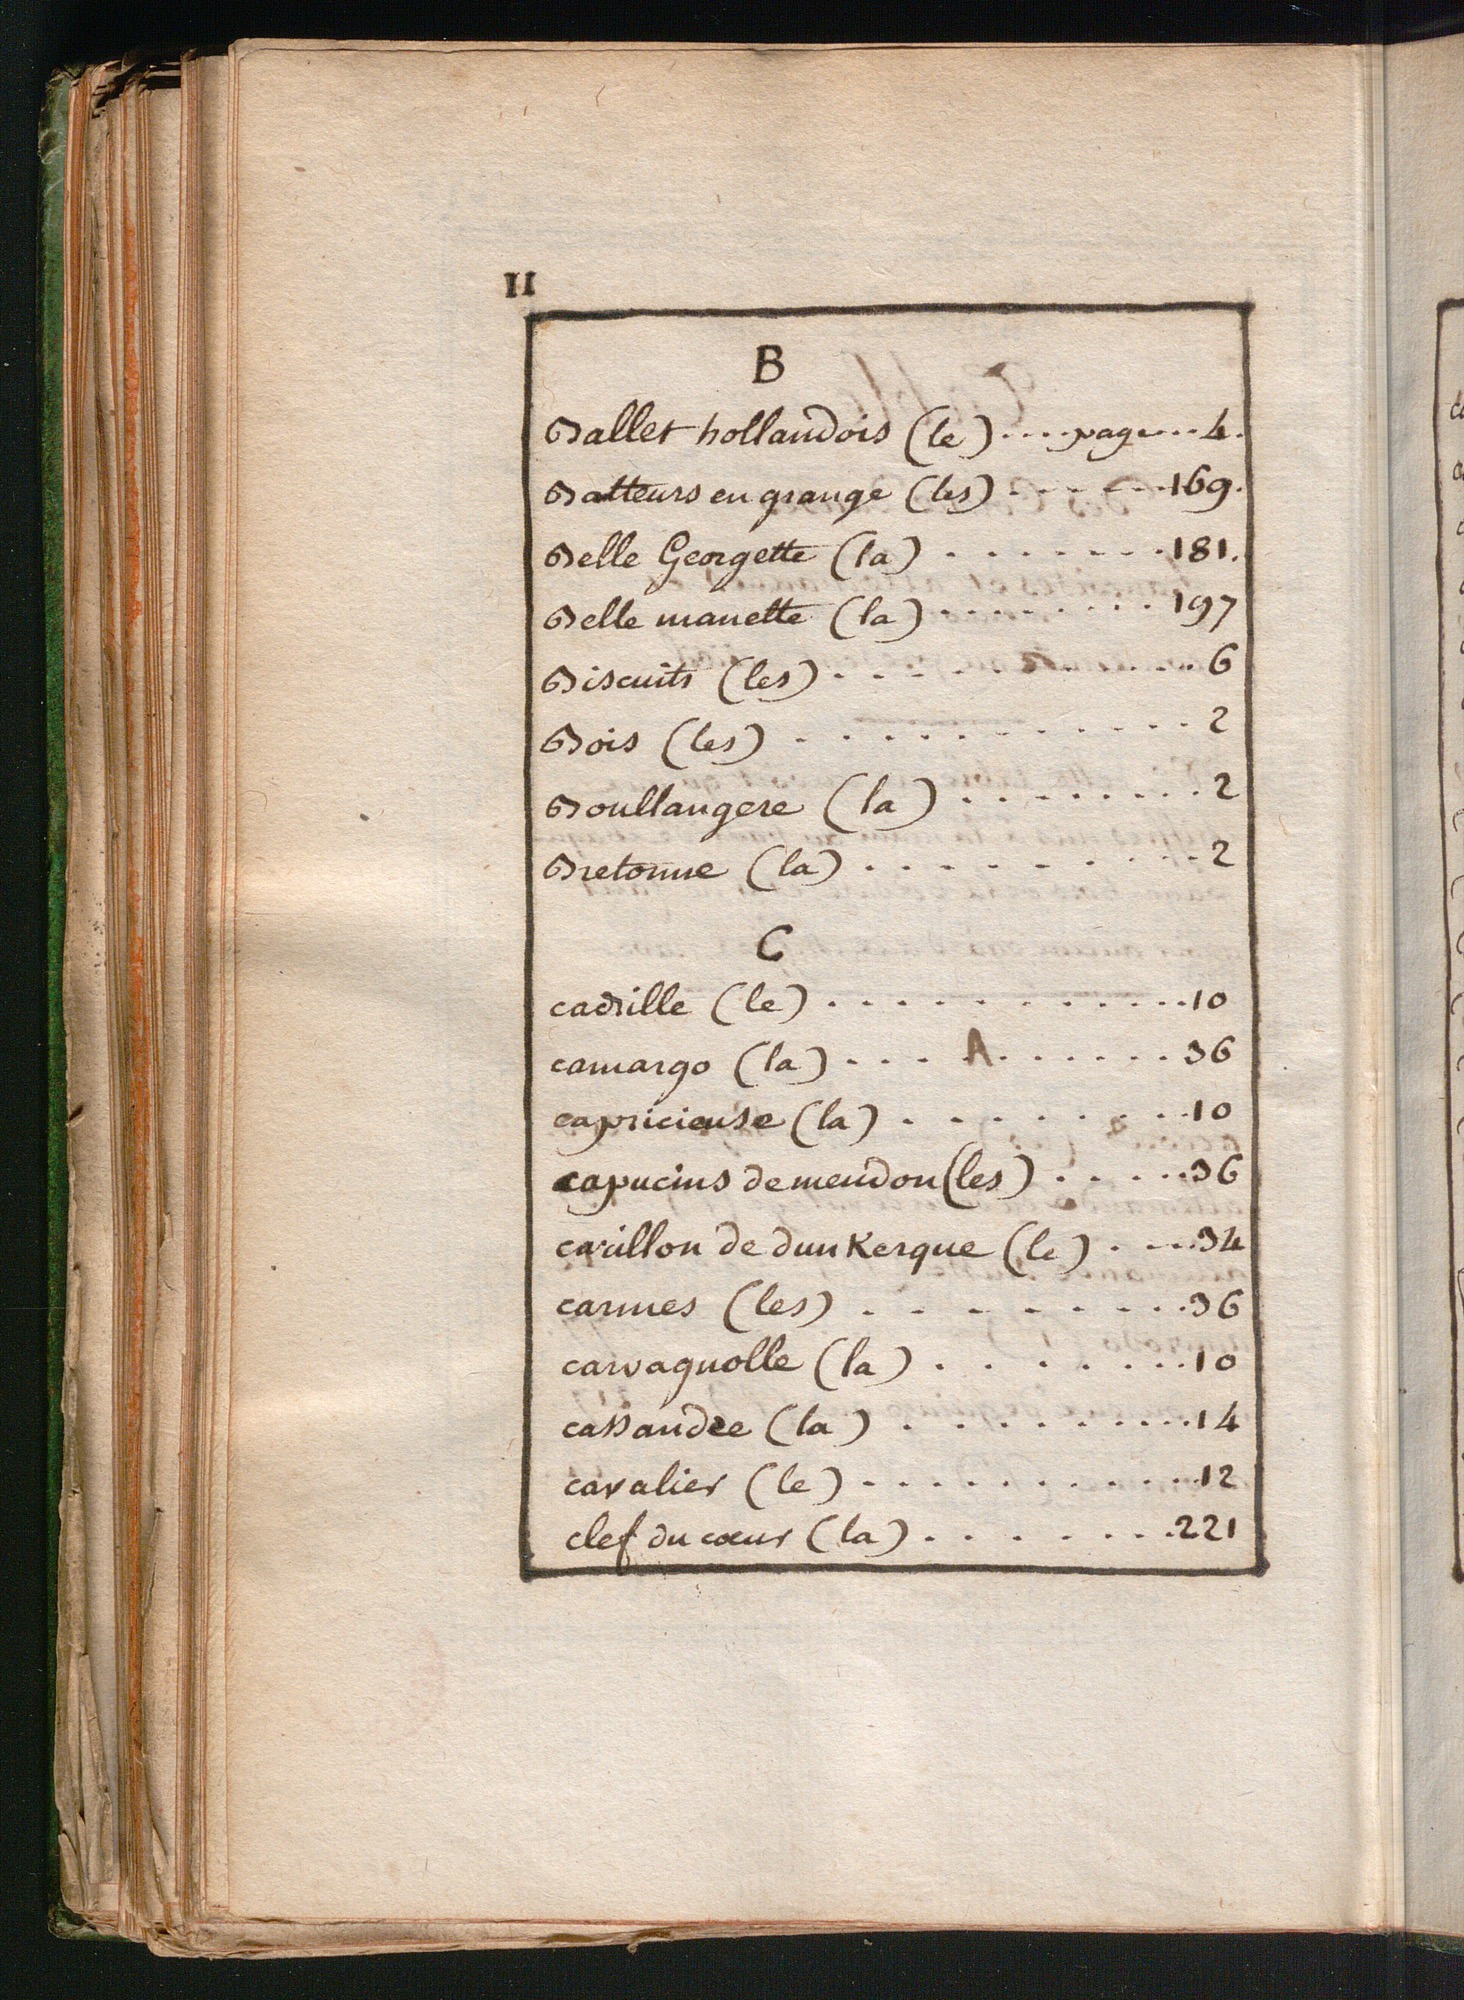 II
B
Ballet hollandois (le)....page...4.
Batteurs en grange (les).......169.
Belle Georgette (la).......181.
Belle manette (la)........197
Biscuits (les)..........6
Bois (les)...........2
Boullangere (la)........2
Bretonne (la).........2
C
cadrille (le)...........10
camargo (la)... A......36
capricieuse (la)........10
capucins de meudon (les).....36
carillon de dunKerque (le)....34
carmes (les).........36
carvagnolle (la).......10
cassandre (la).........14
cavalier (le)..........12
clef du cœur (la).......221